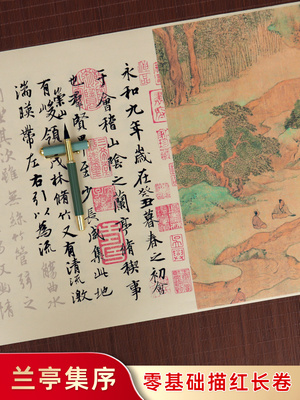 永和九年歲在癸丑暮春之初會
于會稽山陰之蘭亭脩稧事
也羣賢至長咸集此地
有崇山峻領茂林脩竹又有清流激
湍暎帶左右引以為流觴曲水
坐其次雖無絲竹管弦之
幽情
兰亭集序
零基础描红长卷